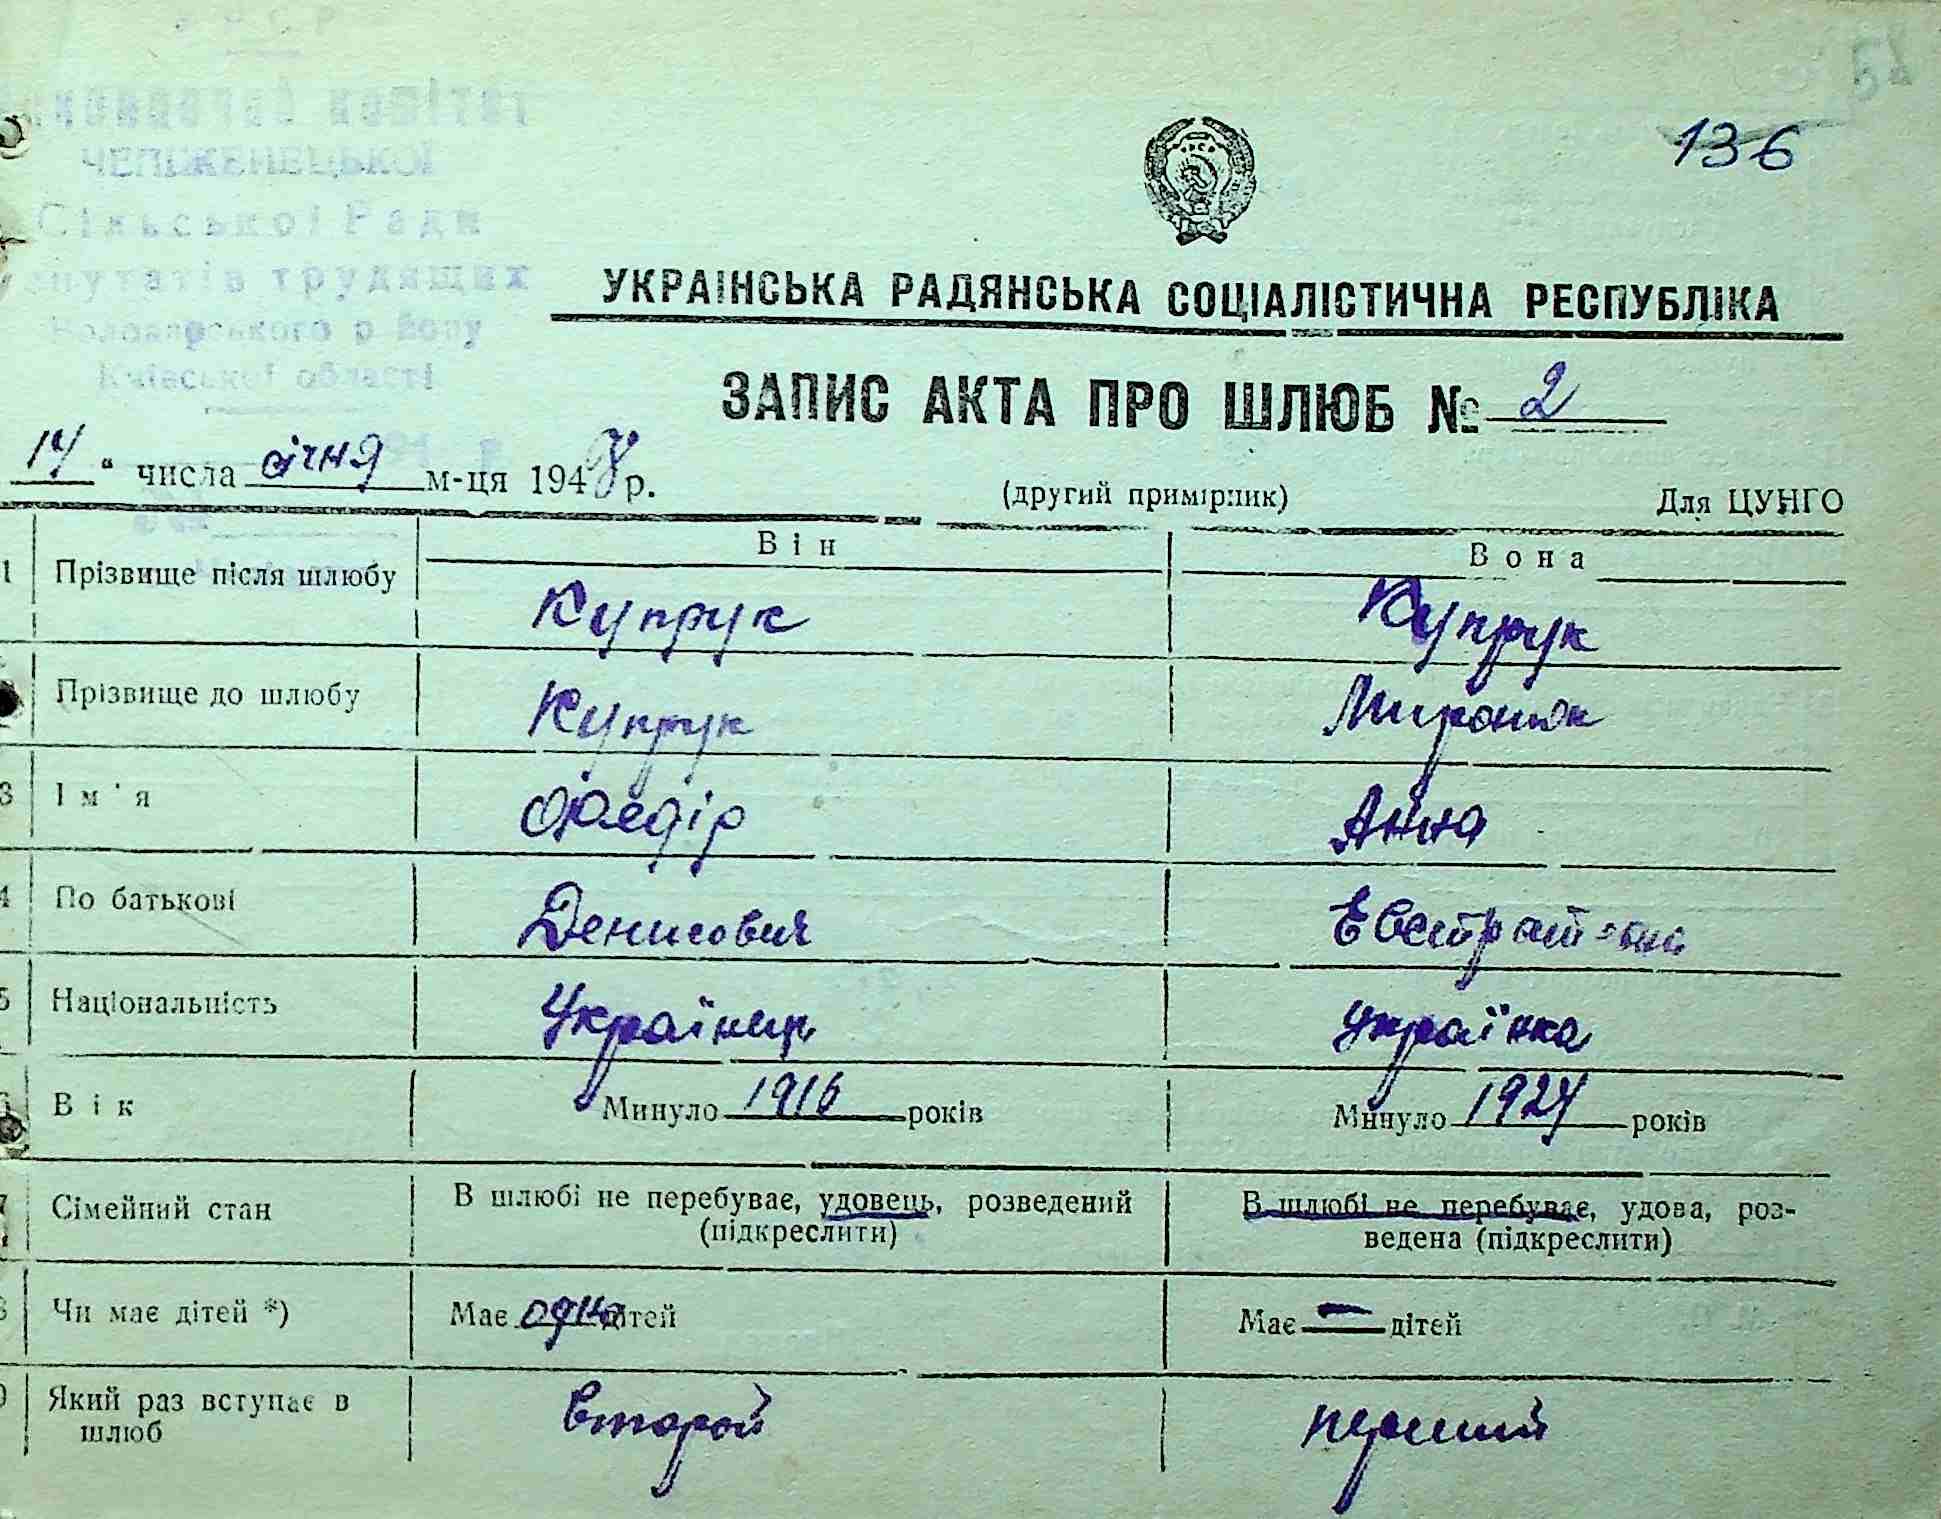 УСР
Виконавчий комітет
ЧЕПІЖЕНЕЦЬКОЇ
Сільської Ради
депутатів трудящих
Володарського р йону
Київської області
54
136
УКРАЇНСЬКА РАДЯНСЬКА СОЦІАЛІСТИЧНА РЕСПУБЛІКА
ЗАПИС АКТА ПРО ШЛЮБ № 2
14 " числа січня м-ця 1948 р.
(другий примірник) Для ЦУНГО
Він Вона
1 Прізвище після шлюбу Купрук Купрук
Прізвище до шлюбу Купрук Миронюк
3 Ім'я Федір Анна
4 По батькові Денисович Евстратовна
5 Національність Українец Українка
6 Вік Минуло 1916 років Минуло 1924 років
7 Сімейний стан В шлюбі не перебуває, удовець, розведений (підкреслити) В шлюбі не перебуває, удова, роз-
ведена (підкреслити)
8 Чи має дітей *) Має одно дітей Має — дітей
9 Який раз вступає в шлюб Второй перший